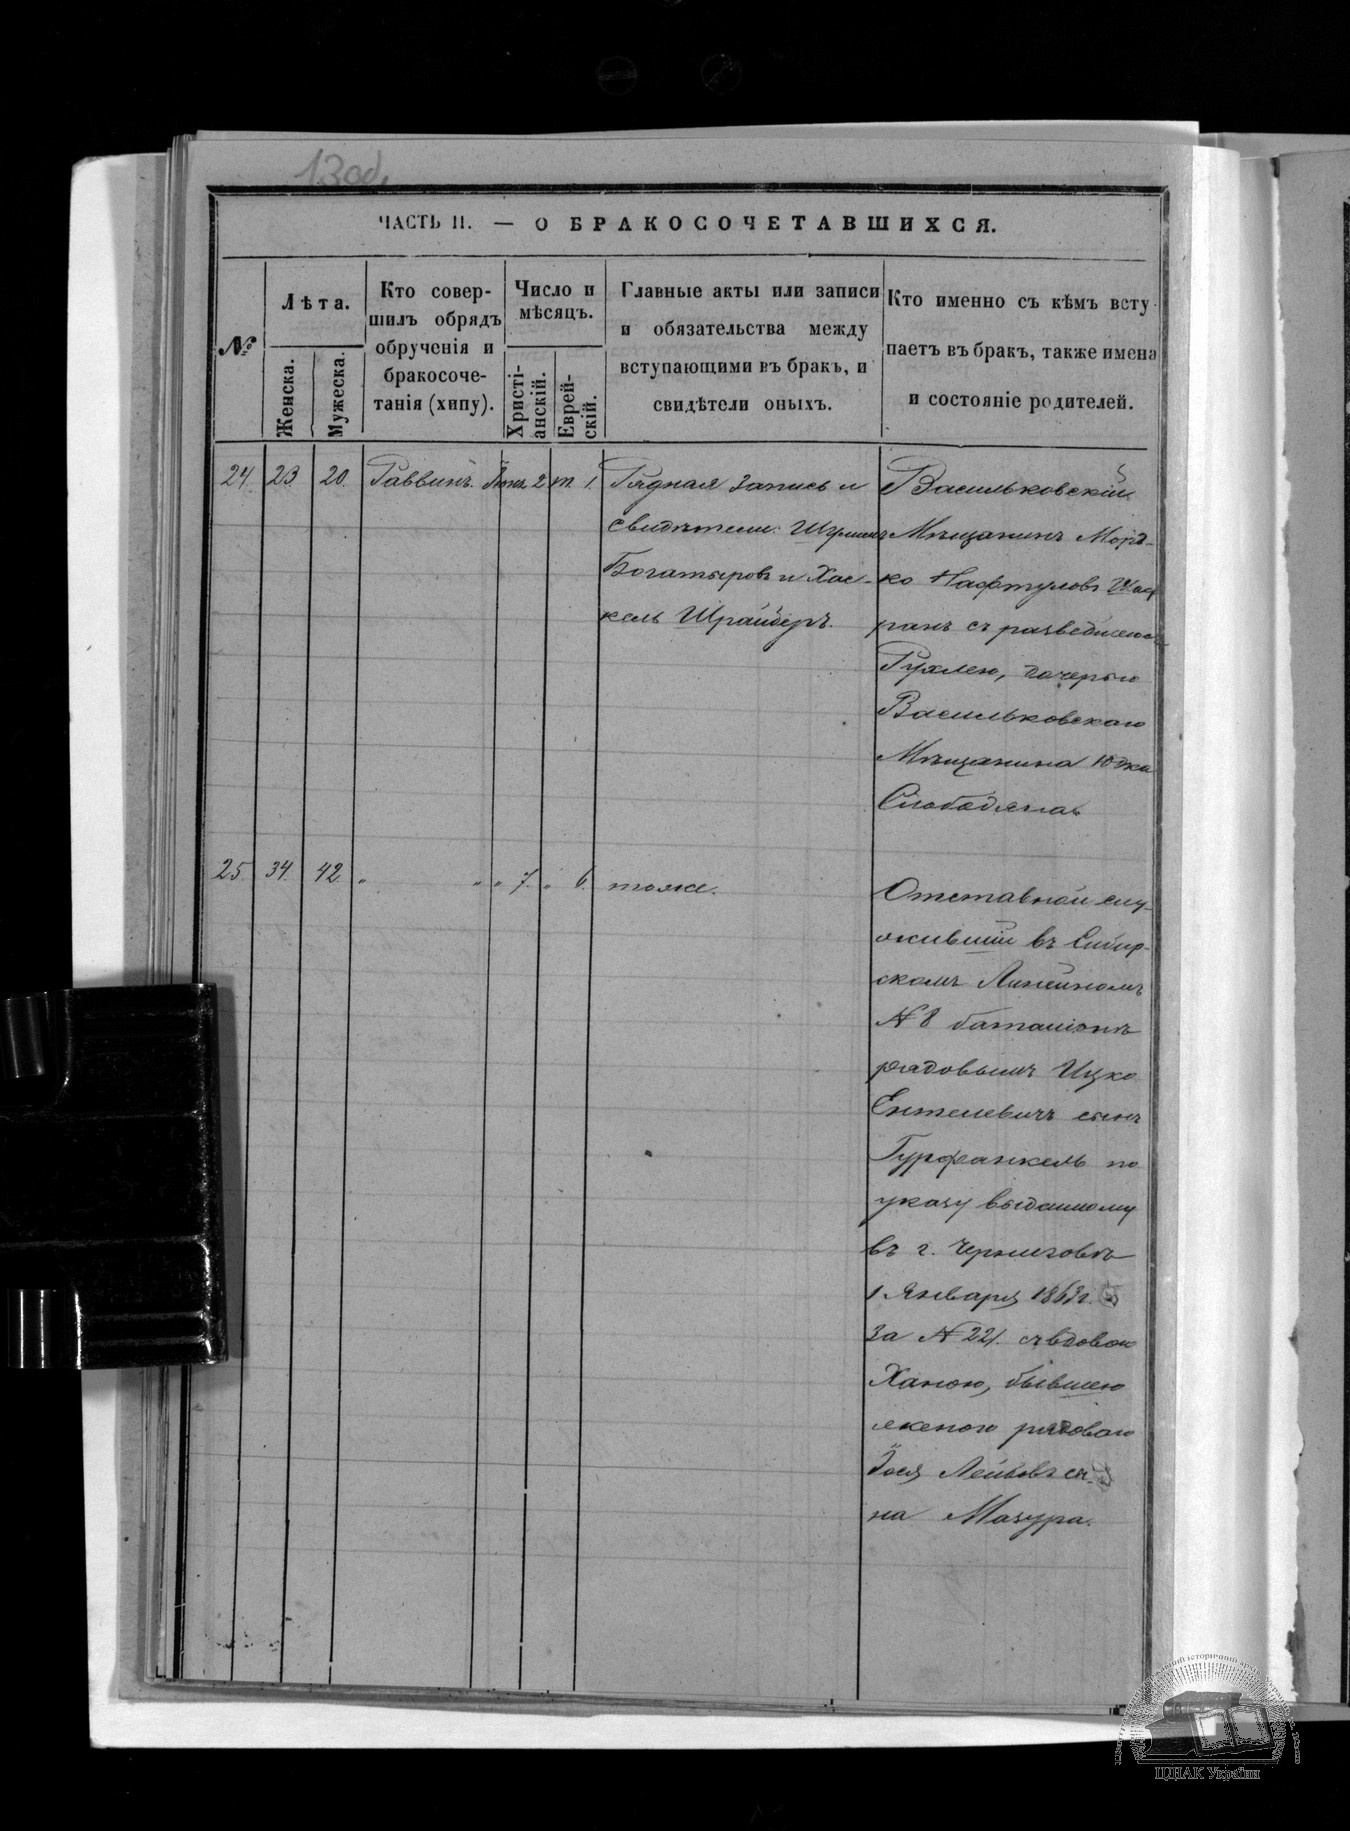 13 об.
ЧАСТЬ II. — О БРАКОСОЧЕТАВШИХСЯ.
№
Лѣта.
Женска.
Мужеска.
Кто совер-
шилъ обрядъ
обрученія и
бракосоче-
танія (хипу).
Число и
мѣсяцъ.
Христі-
анскій.
Еврей-
скій.
Главные акты или записи
и обязательства между
вступающими въ бракъ, и
свидѣтели оныхъ.
Кто именно съ кѣмъ всту-
паетъ въ бракъ, также имена
и состояніе родителей.
24. 23. 20. Раввинъ. 2 т. 1.
Рядная запись и
свидѣтели: Шулимъ
Богатыровъ и Хас-
кель Шрайберъ.
Васильковскій
Мѣщанинъ Морд-
ко Нафтуловъ Шаф
ранъ съ разведенною
Рухлею, дочерью
Васильковскаго
Мѣщанина Юдка
Слободяна
25. 34. 42. „ „ „ 7. „ 6. тоже.
Отставной слу-
жившій въ Сибир-
скомъ Линейномъ
№ 8 баталіонѣ
рядовымъ Ицко
Ентелевичъ сынъ
Гурфинкель по
указу выданному
въ г. Черниговѣ
1 Января 1863 г.
за № 221. съ вдовою
Ханою, бывшею
женою рядоваго
Іося Лейбовъ сы-
на Мазура.
ЦДІАК України